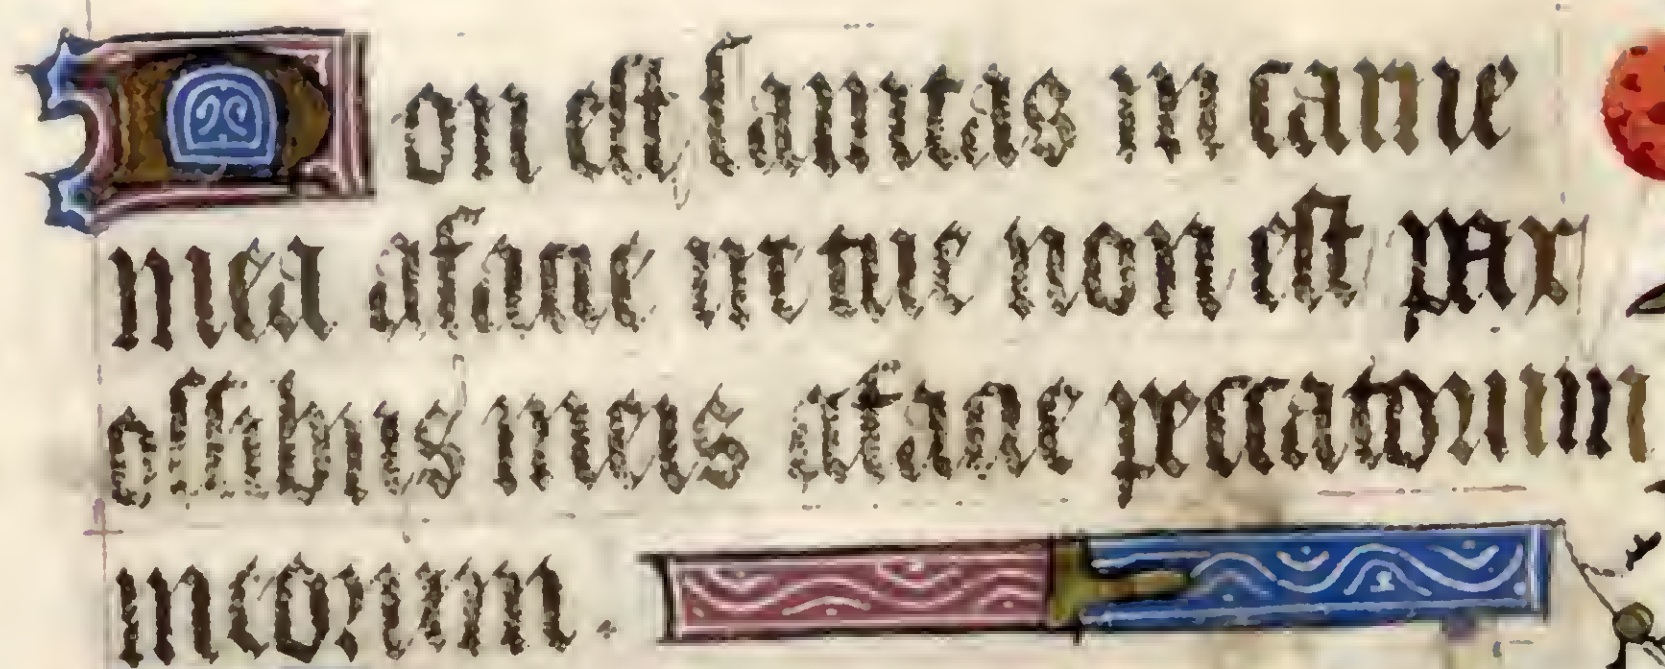 Non est sanitas in carne
mea a facie ire tue non est pax
ossibus meis a facie peccatorum
meorum.